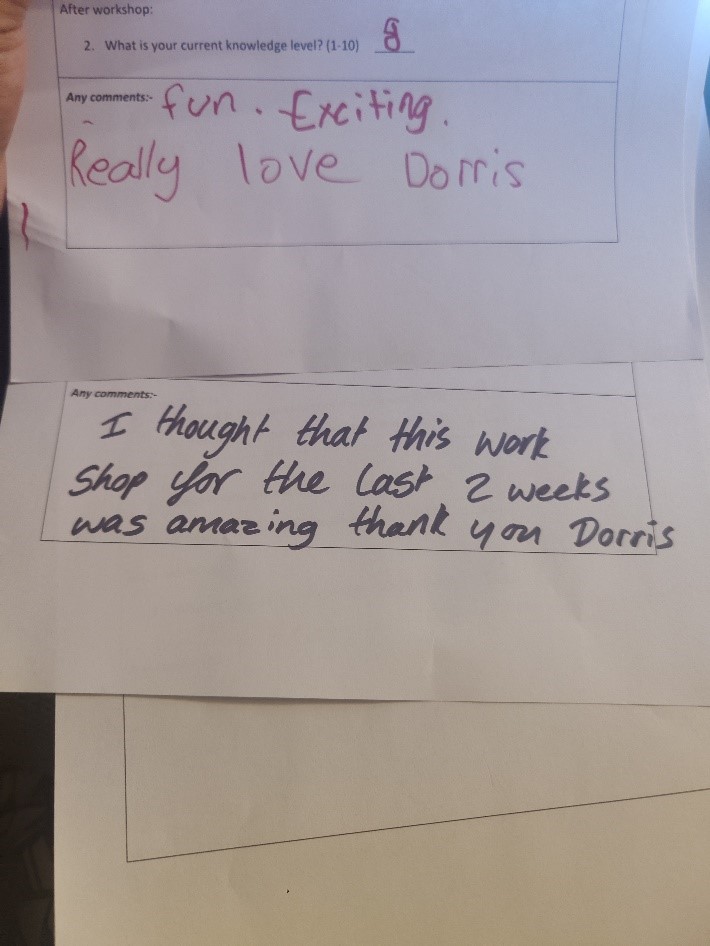 After workshop:
2. What is your current knowledge level? (1-10) 8
Any comments:- fun. Exciting.
Really love Dorris
Any comments:-
I thought that this work
shop for the last 2 weeks
was amazing thank you Dorris